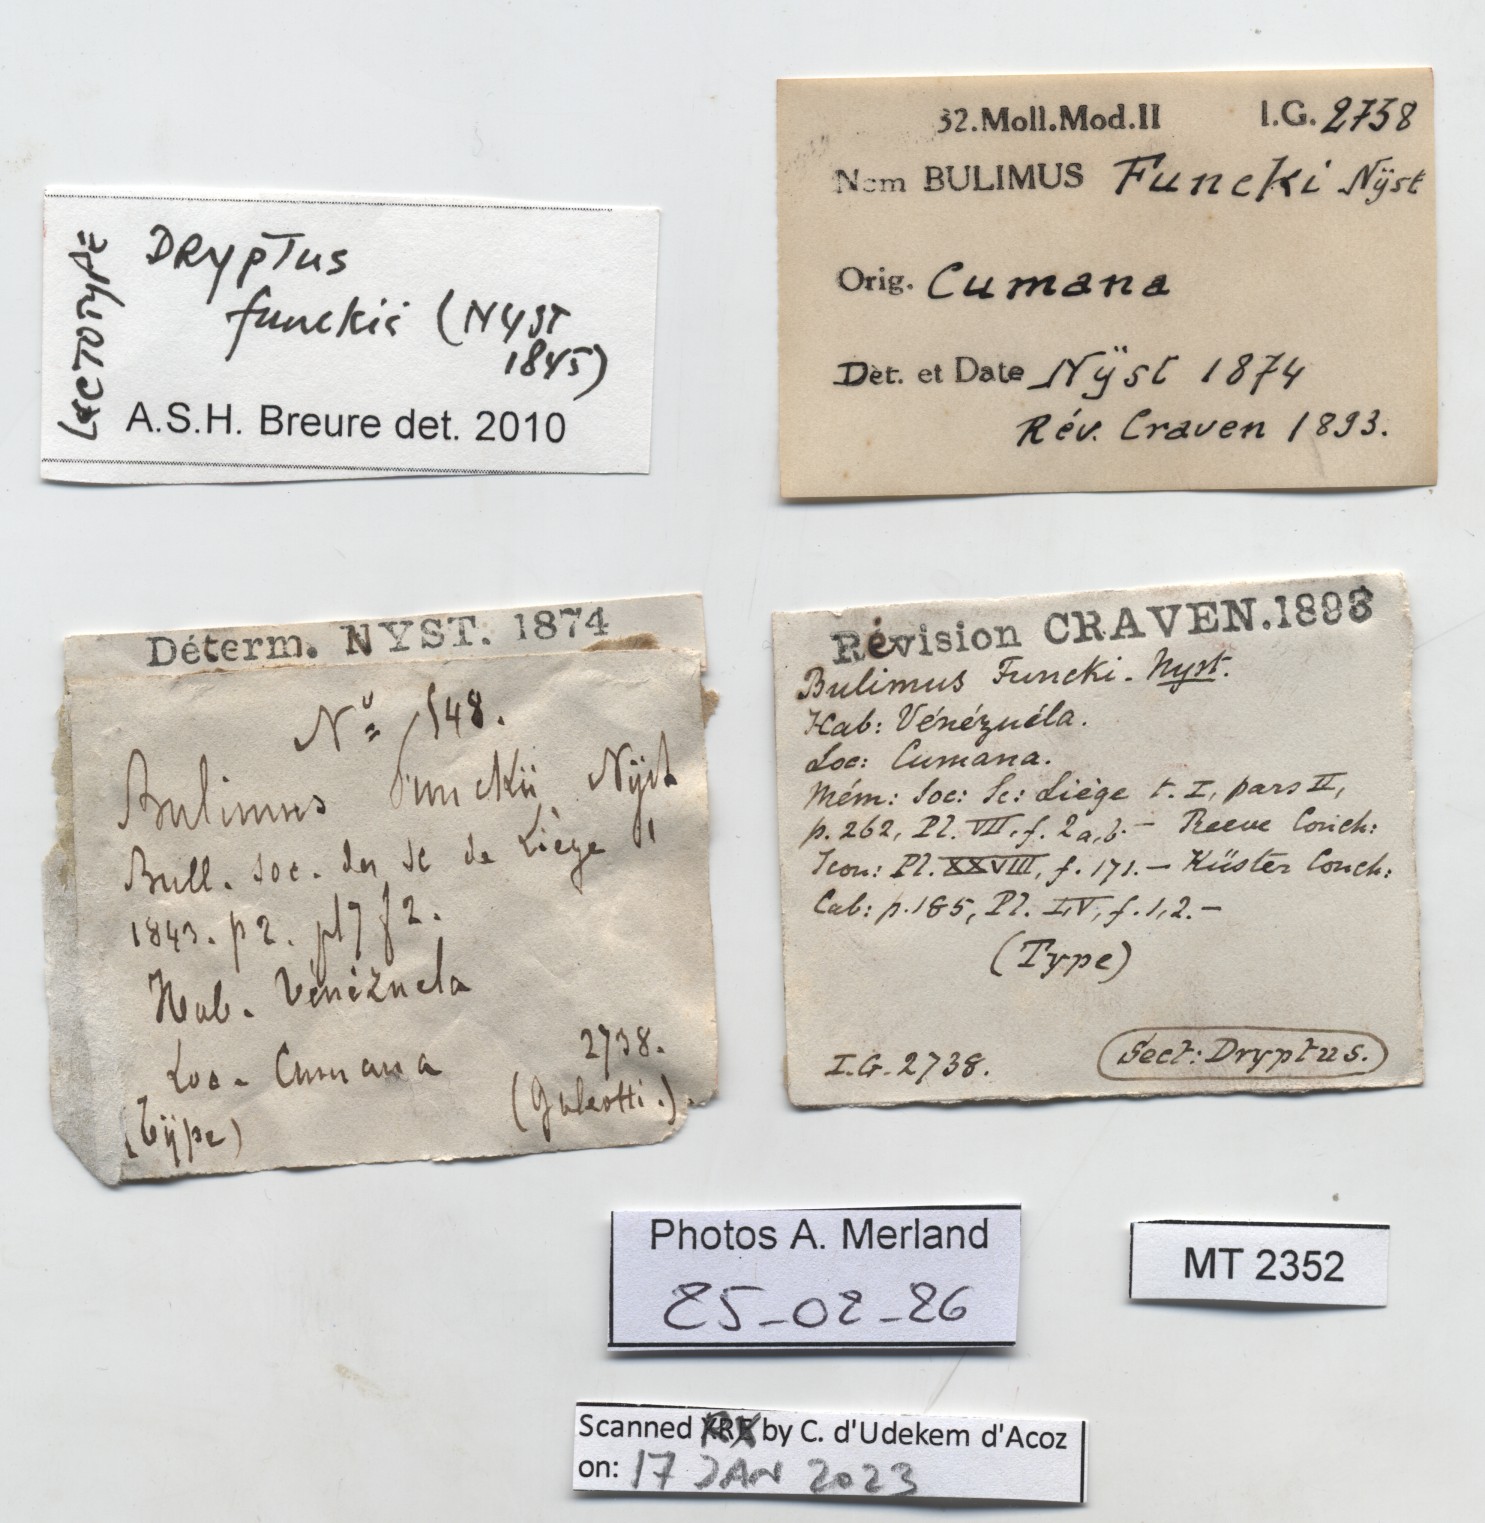 LECTOTYPE
DRYPTUS
funckii (NYST
1845)
A.S.H. Breure det. 2010
32.Moll.Mod.II I.G. 2738
Nom BULIMUS Funcki Nÿst
Orig. Cumana
Dèt. et Date Nÿst 1874
Rév. Craven 1893.
Déterm. NYST. 1874
No 548.
Bulimus Funckii Nÿst
Bull. Soc. des Sc de Liège
1843. p 2. pl 7 f 2.
Hab. Vénézuela
Loc. Cumana 2738.
(Tÿpe) (Galeotti.).
Révision CRAVEN.1893
Bulimus Funcki. Nyst.
Hab: Vénézuéla.
Loc: Cumana.
Mém: Soc: Sc: Liège t. I, pars II,
p. 262, Pl. VII, f. 2a,b. — Reeve Conch:
Icon: Pl. XXVIII, f. 171. — Küster Conch:
Cab: p. 185, Pl. IV, f. 1,2. —
(Type)
I.G. 2738. Sect: Dryptus.
Photos A. Merland
25-02-26
MT 2352
Scanned RX by C. d'Udekem d'Acoz
on: 17 JAN 2023